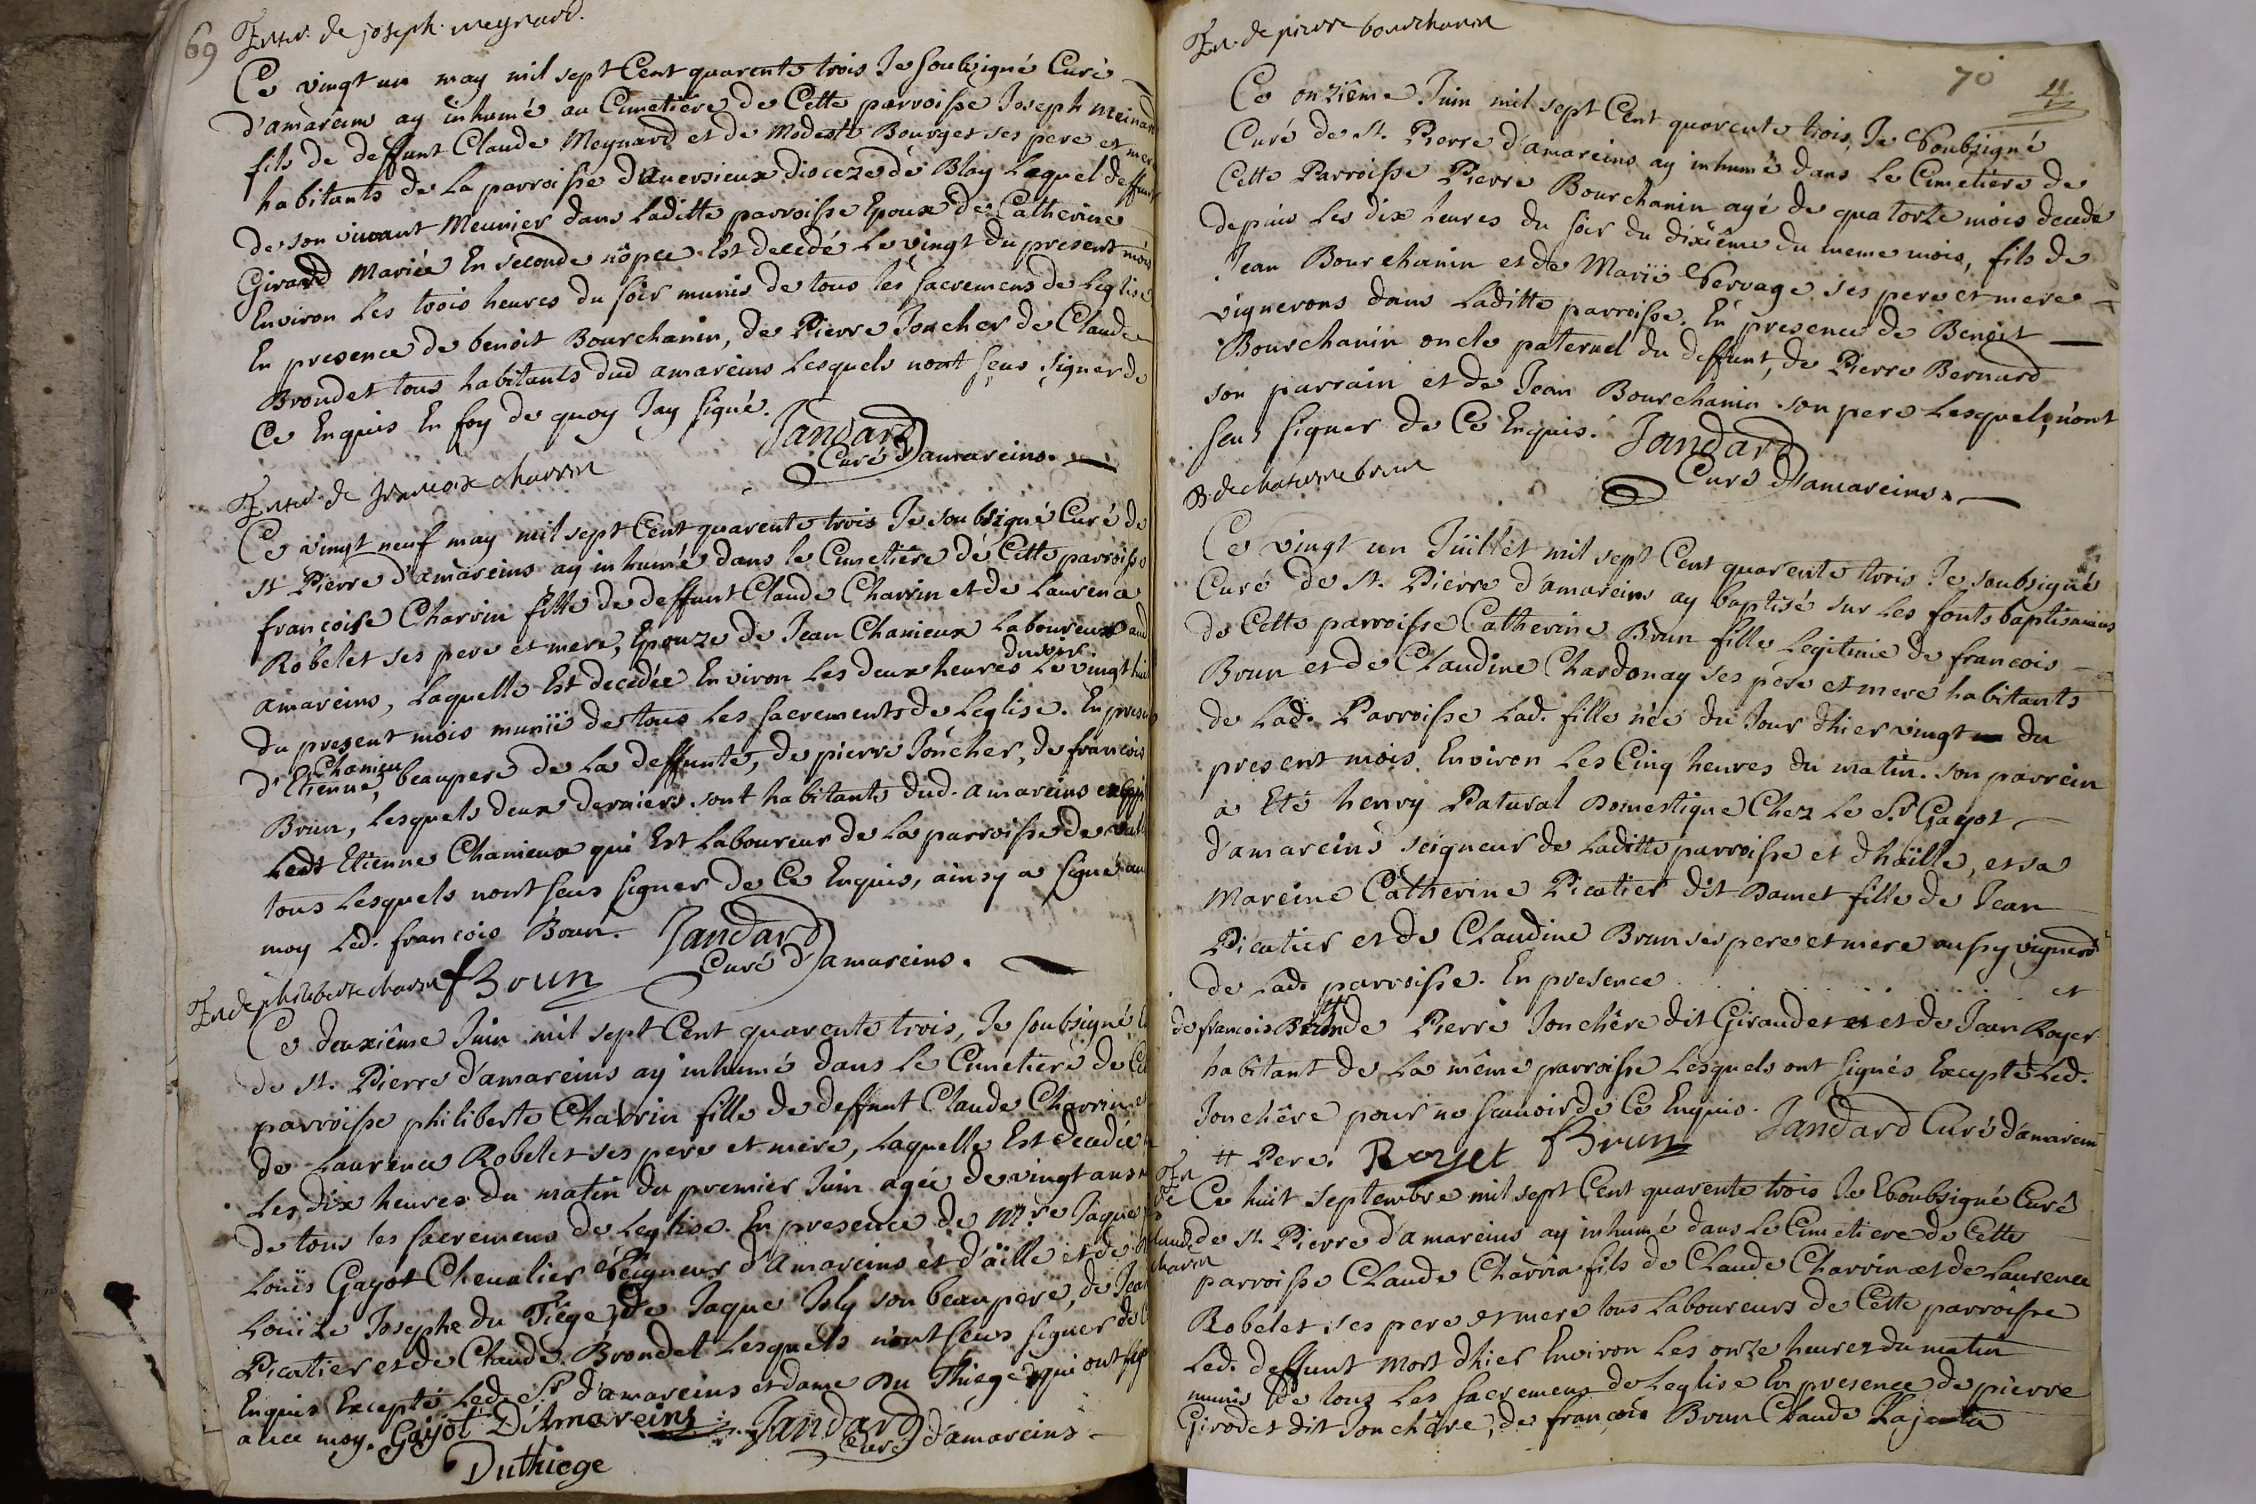 69
Enter. de joseph meynard.
Ce vingt un may mil sept Cent quarente trois Je soubsigné Curé
d'amareins ay inhumé au Cimetière de Cette parroisse Joseph Meinard
fils de deffunt Claude Meynard et de Modeste Bourget ses pere et mere
habitants de La parroisse d'Aversieux dioceze de Blay Lequel deffunt
de son vivant Meunier dans laditte parroisse Epoux de Catherine
Girard Mariée En seconde nôpce. Est decedé Le vingt du present mois
Environ Les trois heures du soir munis de tous les sacremens de Leglise
En presence de benoit Bourchanin, de Pierre Joncher de Claude
Brondet tous habitants dud amareins Lesquels n'ont sçus signer de
Ce Enquis En foy de quoy Jay signé.
Jandard
Curé Damareins.
Enter. de francoise charrin
Ce vingt neuf may mil sept Cent quarente trois Je soubsigné Curé de
st Pierre d'amareins ay inhumé dans le Cimetière de Cette parroisse
francoise Charrin fille de deffunt Claude Charrin et de Laurence
Robelet ses pere et mere, Epouze de Jean Chanieux Laboureur aud
amareins, Laquelle Est decedée Environ Les deux heures du soir Le vingt huit
du present mois munie de tous Les sacrements de Leglise. En presence
d'Etienne Chanieu, beaupere de La deffunte, de pierre Joncher, de francois
Brun, Lesquels deux derniers sont habitants dud. amareins excepté
Ledt Etienne Chanieux qui Est Laboureur de La parroisse de
tous Lesquels n'ont sçus signer de Ce Enquis, ainsy a signé avec
moy Led. francois Brun. Jandard
Curé d'amareins.
fBrun
En de philiberte charrin
Ce deuxième Juin mil sept Cent quarente trois, Je soubsigné Curé
de st. Pierre d'amareins ay inhumé dans le Cimetière de Cette
parroisse philiberte Charrin fille de deffunt Claude Charrin et
de Laurence Robelet ses pere et mere, Laquelle Est decedée
Les dix heures du matin du premier Juin agée de vingt ans
de tous les sacremens de Leglise. En presence de Mre Jaque
Loüis Gayot Chevalier Seigneur d'Amareins et d'aille et de
Loüize Josephe du Tiége, de Jaque Joly son beaupère, de Jean
Picatier et de Claude Brondel Lesquels n'ont sçus signer de Ce
Enquis Excepté Led. Sr. d'amareins et dame Du Thiege qui ont signé
avec moy. Gayot D'Amareins Jandard
Curé d'amareins
Duthiege
En. de pierre bourchanin
70
Ce onzième Juin mil sept Cent quarente trois, Je Soubsigné
Curé de St. Pierre d'amareins ay inhumé dans Le Cimetière de
Cette Parroisse Pierre Bourchanin agé de quatorze mois decedé
depuis Les dix heures du soir du dixième du meme mois, fils de
Jean Bourchanin et de Marie Servage ses pere et mere
vignerons dans Laditte parroisse. En presence de Benoit
Bourchanin oncle paternel du deffunt, de Pierre Bernard
son parrain et de Jean Bourchanin son pere Lesquels n'ont
sçus signer de Ce Enquis. Jandard
Curé Damareins.
B. de Catherine brun
Ce vingt un Juillet mil sept Cent quarente trois Je soubsigné
Curé de St. Pierre d'amareins ay baptisé sur Les fonts baptismaux
de Cette parroisse Catherine Brun fille Legitime de francois
Brun et de Claudine Chardonay ses pére et mere habitants
de Lad. Parroisse Lad. fille née du Jour d'hier vingt du
present mois Environ Les Cinq heures du matin. son parrein
a Eté henry Patural Domestique Chez Le Sr. Gayot
d'amareins seigneur de Laditte parroisse et d'haïlle, et sa
Mareine Catherine Picatier dit Damet fille de Jean
Picatier et de Claudine Brun ses pere et mere aussy vignerons
de Lad. parroisse. En presence et
de francois Brun # de Pierre Jonchére dit Giraudet et de Jean Royer
habitant de La même parroisse Lesquels ont signés Excepté Led.
Jonchère pour ne sçavoir de Ce Enquis. Jandard Curé d'amareins
# Pere. Royet fBrun
En de Claude charrin
Ce huit septembre mil sept Cent quarente trois Je Soubsigné Curé
de st. Pierre d'amareins ay inhumé dans Le Cimetiere de Cette
parroisse Claude Charrin fils de Claude Charrin et de Laurence
Robélet ses pere et mere tous Laboureurs de Cette parroisse
Led. deffunt Mort d'hier Environ Les onze heures du matin
munis de tous Les sacremens de Leglise En presence de pierre
Girodet dit Jonchère, de françois Brun Claude